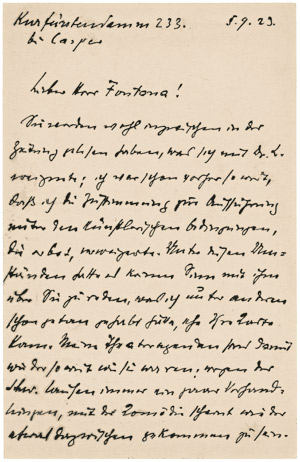 Kurfürstendamm 233. 5.9.23.
bei Casper
Lieber Herr Fontana!
Sie werden wohl inzwischen in der
Zeitung gelesen haben, was sich mit Dr. L.
ereignete; ich war schon vorher so weit,
daß ich die Zustimmung zur Aufführung
unter den künstlerischen Bedingungen,
die er bot, verweigerte. Unter diesen Um-
ständen hatte es keinen Sinn mit ihm
über Sie zu reden, was ich unter anderen
schon getan gehabt hätte, ehe Ihre Karte
kam. Meine Theateragenden sind damit
wieder so weit wie sie waren, wegen der
Schw. laufen immer ein paar Verhand-
lungen, mit der Komödie scheint wieder
etwas dazwischen gekommen zu sein.